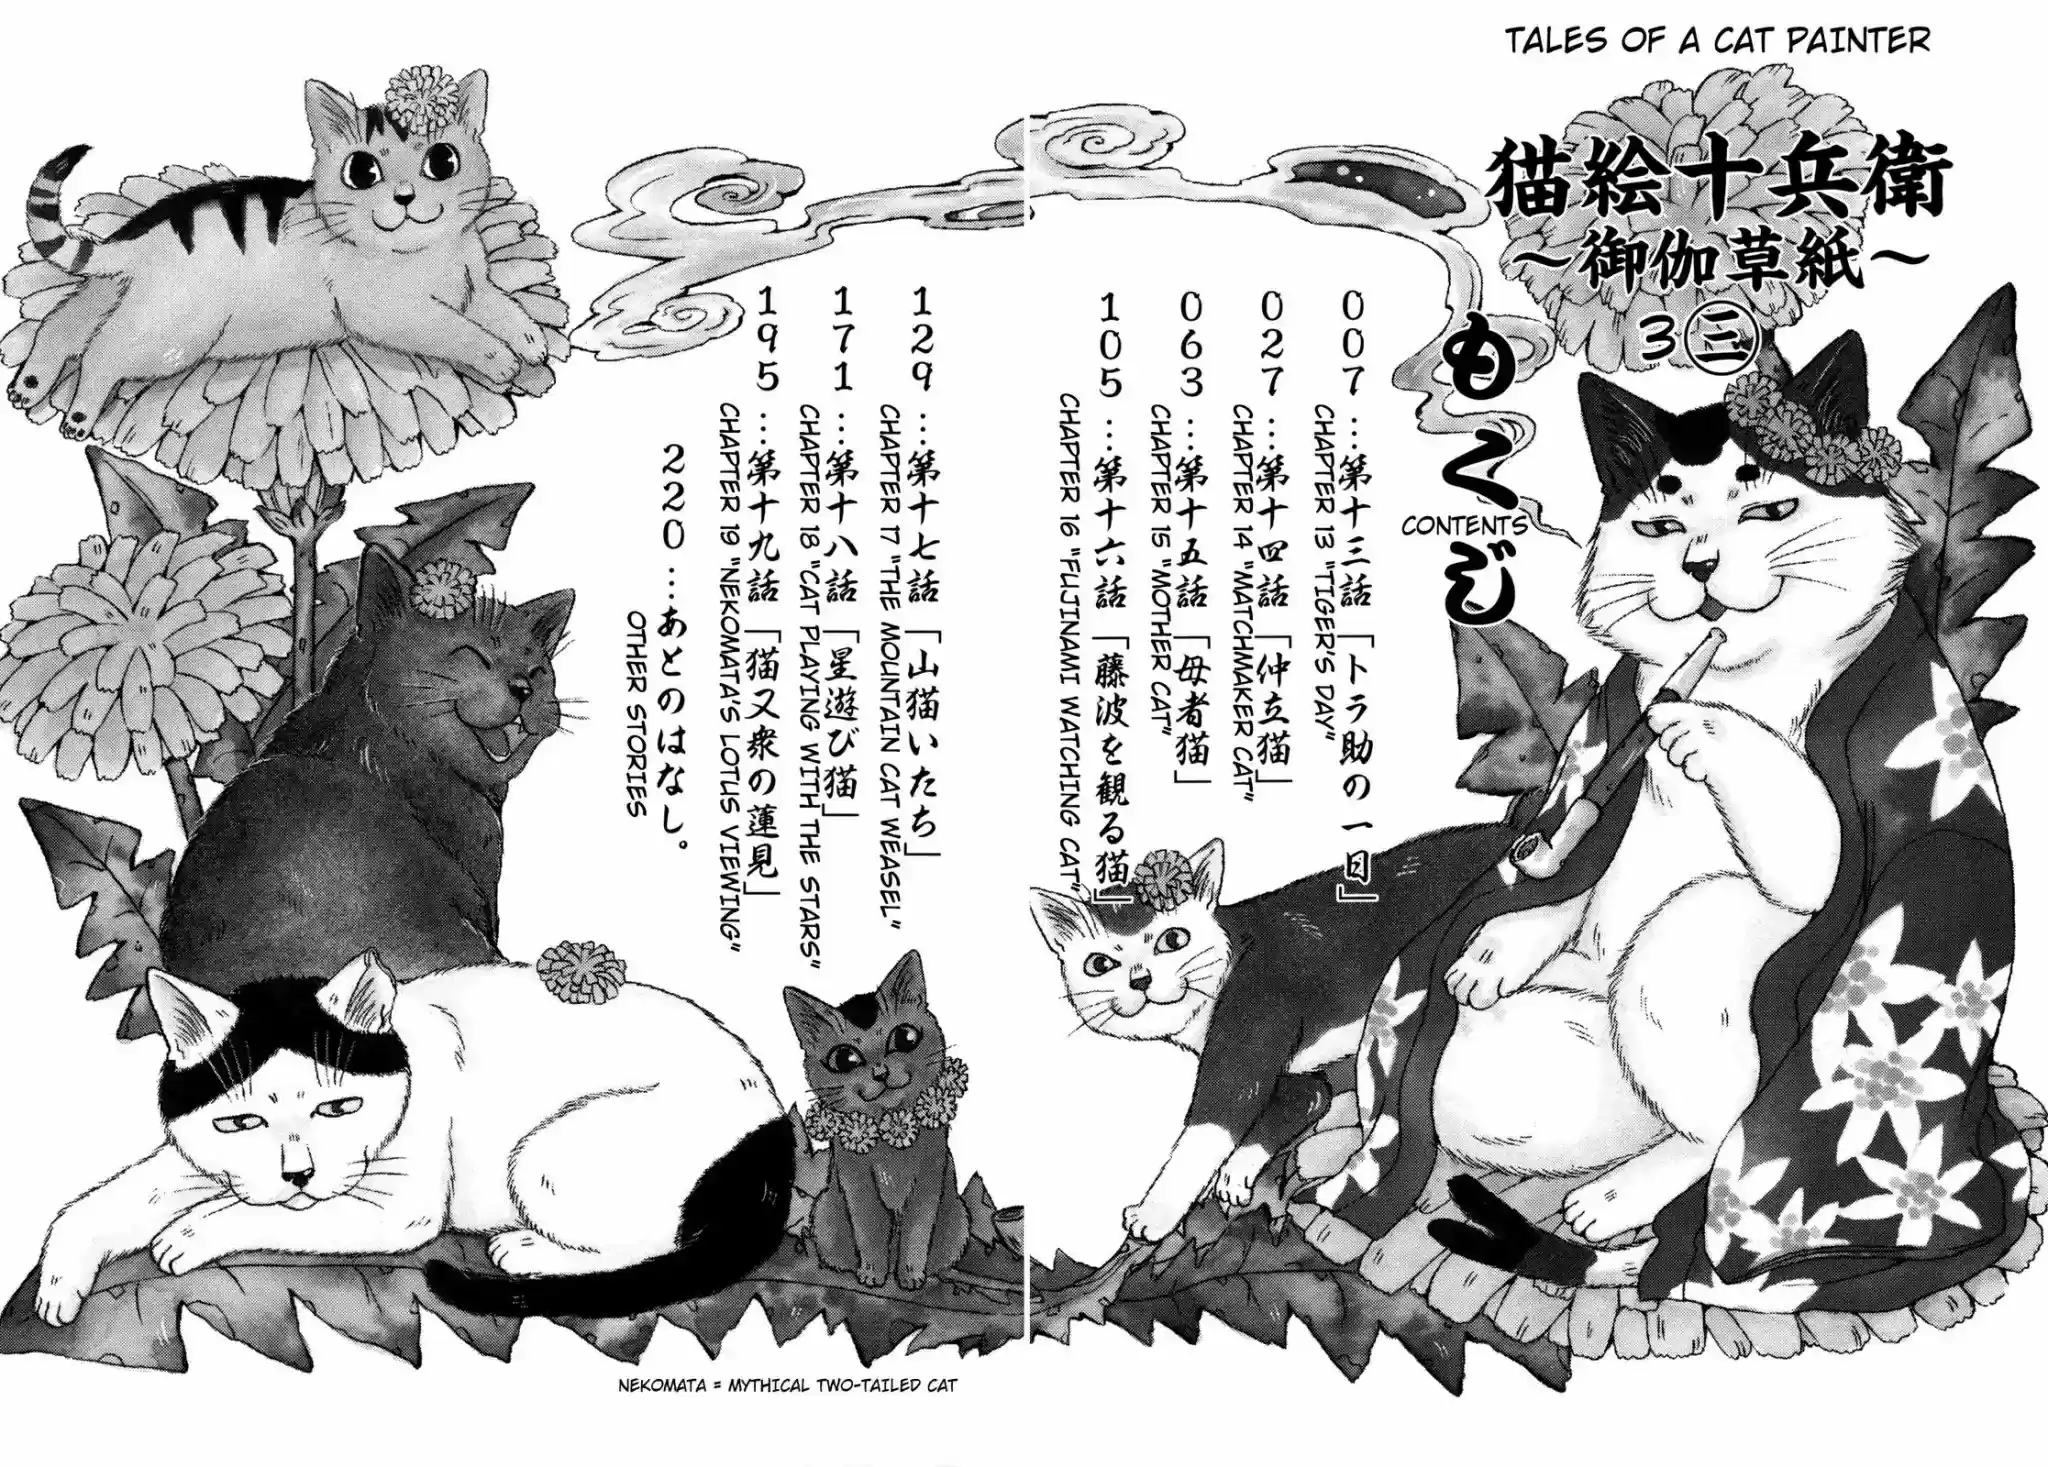 TALES OF A CAT PAINTER
猫絵十兵衛
～御伽草紙～
3 ㊂
もくじ
CONTENTS
007…第十三話「トラ助の一日」
CHAPTER 13 "TIGER'S DAY"
027…第十四話「仲立猫」
CHAPTER 14 "MATCHMAKER CAT"
063…第十五話「母者猫」
CHAPTER 15 "MOTHER CAT"
105…第十六話「藤波を観る猫」
CHAPTER 16 "FUJINAMI WATCHING CAT"
129…第十七話「山猫いたち」
CHAPTER 17 "THE MOUNTAIN CAT WEASEL"
171…第十八話「星遊び猫」
CHAPTER 18 "CAT PLAYING WITH THE STARS"
195…第十九話「猫又衆の蓮見」
CHAPTER 19 "NEKOMATA'S LOTUS VIEWING"
220…あとのはなし。
OTHER STORIES
NEKOMATA = MYTHICAL TWO-TAILED CAT